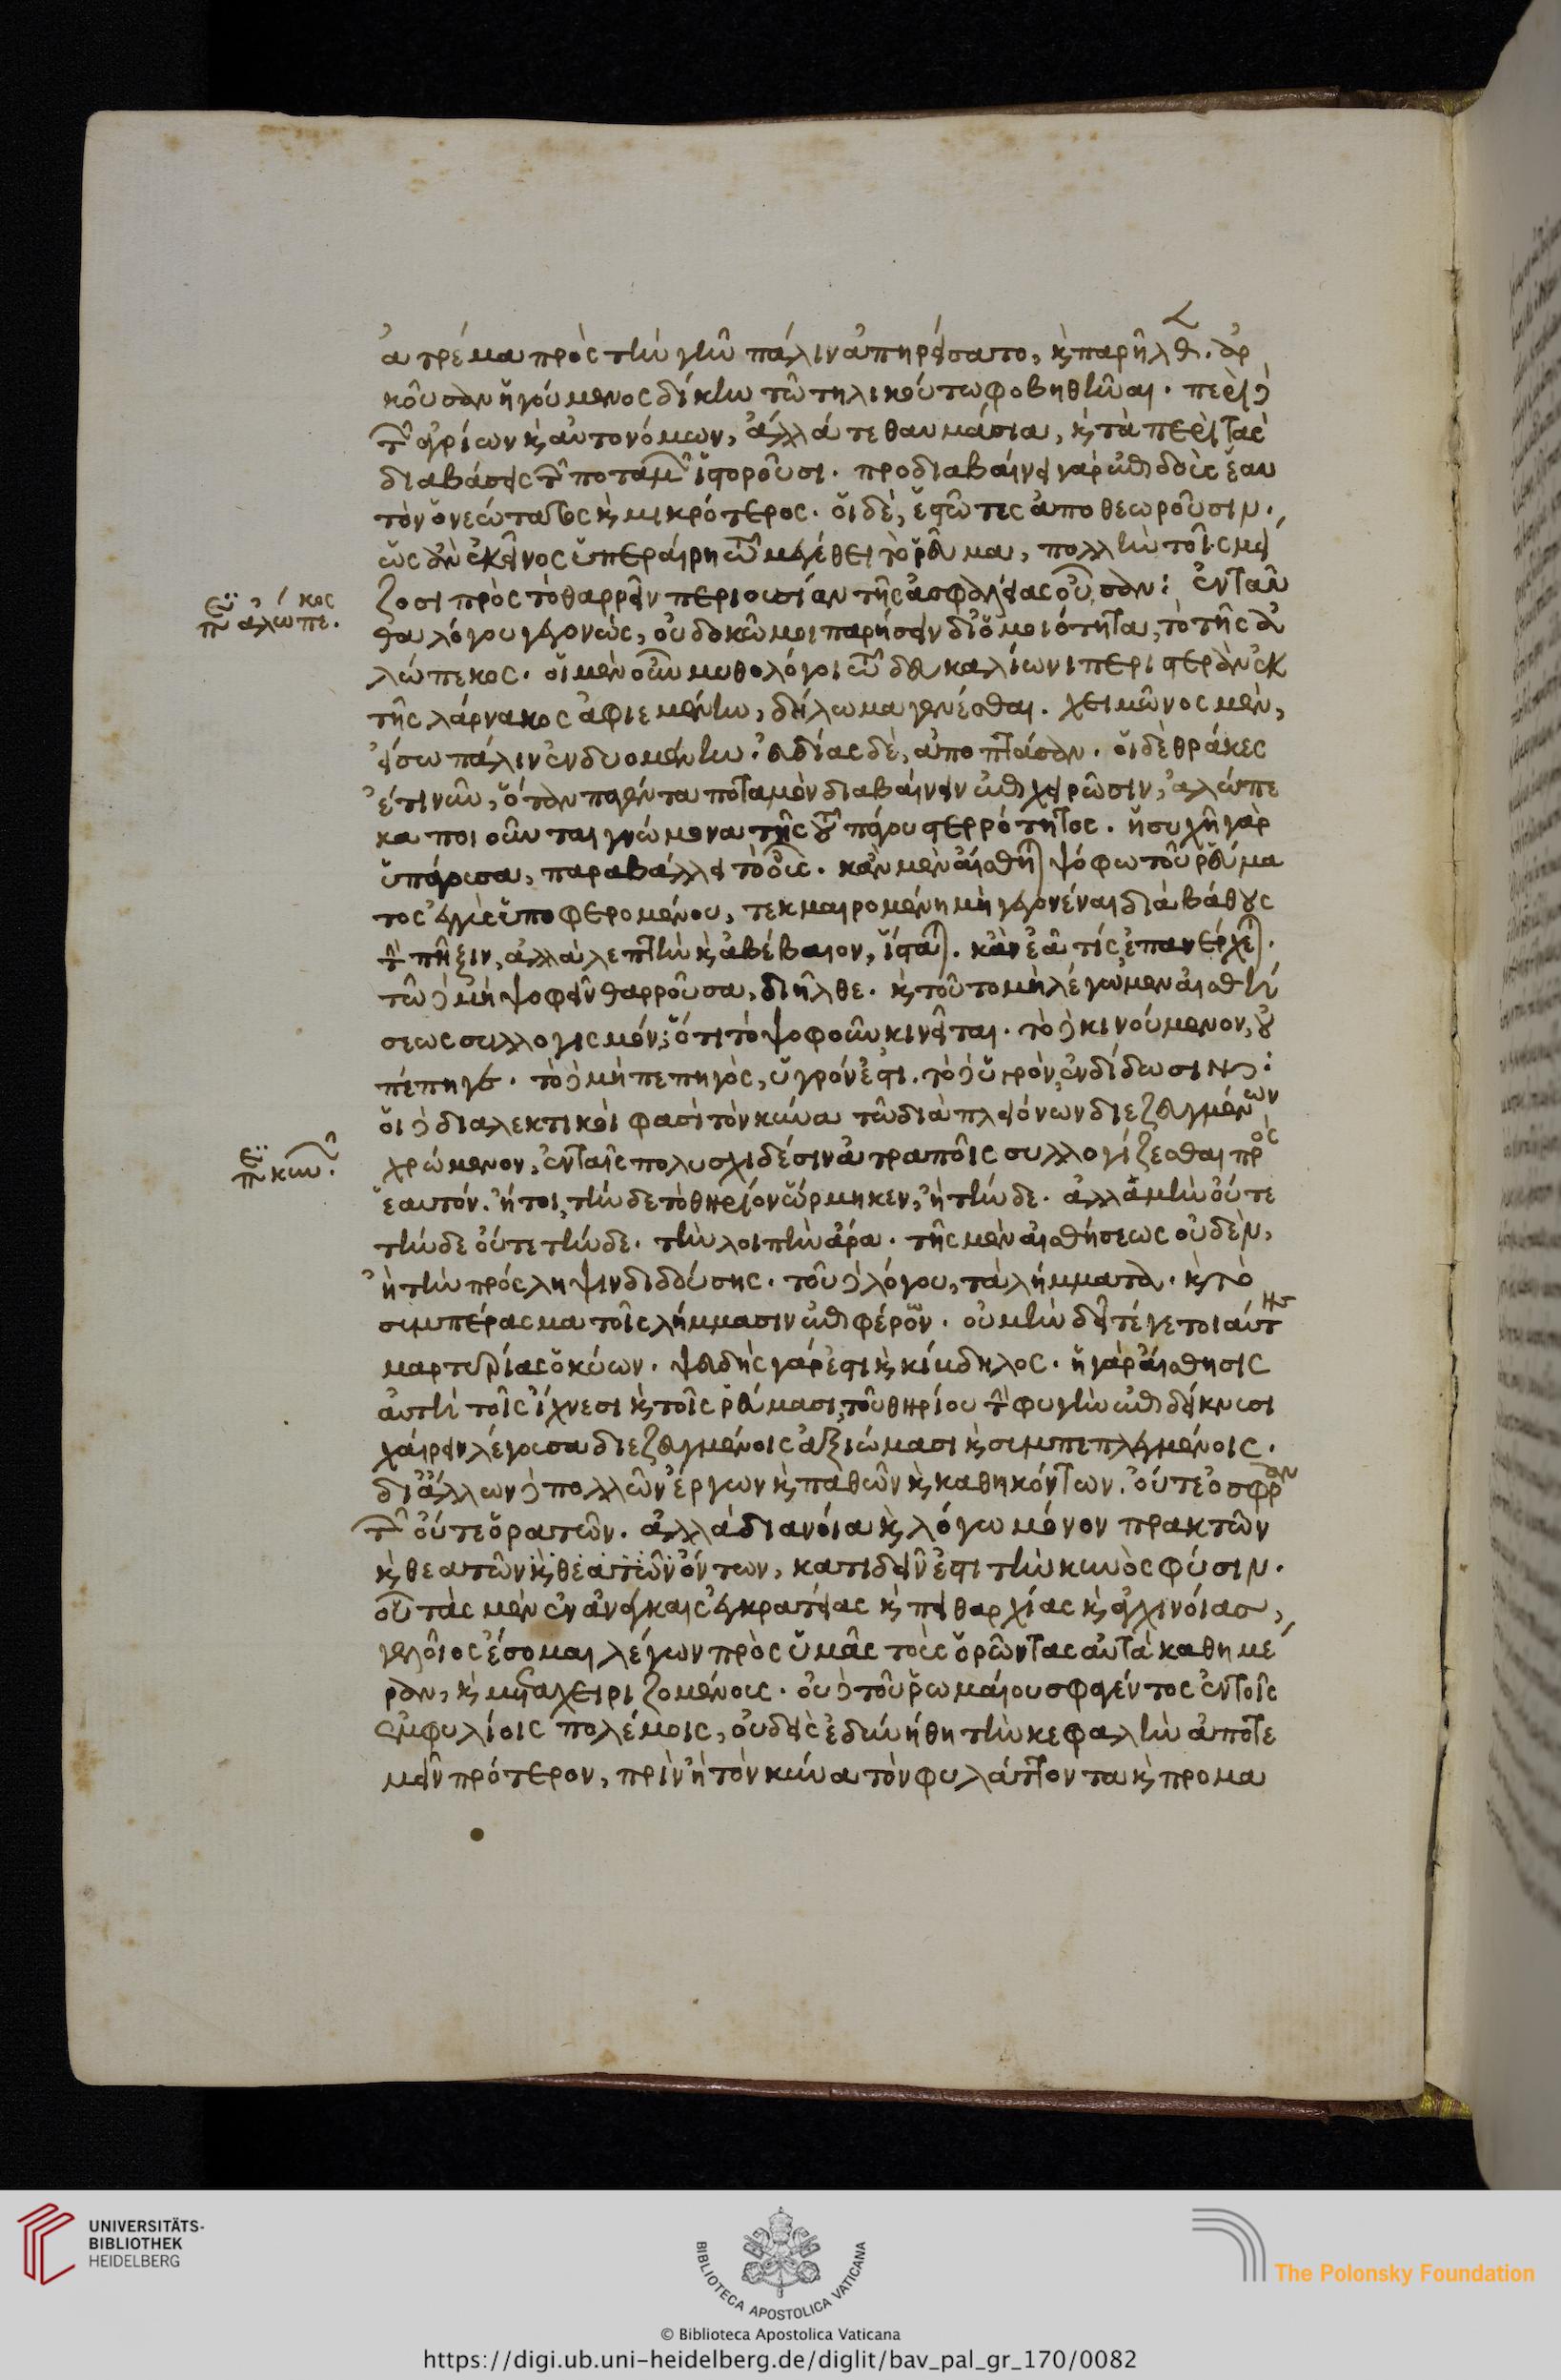 ἀτρέμα πρὸς τὴν γῆν πάλιν ἀπηρείσατο, κ παρῆλθεν. ἀρ
κοῦσαν ἡγούμενος δίκην τῶ τηλικούτω φοβηθῆναι. περὶ δὲ
τῶν ἀγρίων κ αὐτονόμων, ἄλλά τε θαυμάσια, κ τὰ περὶ τὰς
διαβάσεις τῶν ποταμῶν ἱστοροῦσι. προδιαβαίνει γὰρ ἐπιδοὺς ἑαυ
τὸν ὁ νεώτατος κ μικρότερος. οἱ δὲ, ἑστῶτες ἀποθεωροῦσιν.
ὡς ἂν ἐκεῖνος ὑπεραίρη τῶ μεγέθει τὸ ῥεῦμα, πολλὴν τοῖς μεί
ζοσι πρὸς τὸ θαρρεῖν περιουσίαν τῆς ἀσφαλείας οὖσαν: ἐνταῦ
θα λόγου γεγονὼς, οὐ δοκῶ μοι παρήσειν δι ὁμοιότητα, τὸ τῆς ἀ
λώπεκος. οἱ μὲν οὖν μυθολόγοι τῶ δευκαλίωνι περιστερὰν ἐκ
τῆς λάρνακος ἀφιεμένην, δήλωμα γενέσθαι. χειμῶνος μὲν,
εἴσω πάλιν ἐνδυομένην. εὐδίας δὲ, ἀποπτᾶσαν. οἱ δὲ θράκες
ἔτι νῦν, ὅταν παγέντα ποταμὸν διαβαίνειν ἐπιχειρῶσιν, ἀλώπε
κα ποιοῦνται γνώμονα τῆς τοῦ πάγου στερρότητος. ἡσυχῆ γὰρ
ὑπάγουσα, παραβάλλει τὸ οὖς. κἂν μὲν αἴσθηται ψόφω τοῦ ῥεύμα
τος ἐγγὺς ὑποφερομένου, τεκμαιρομένη μὴ γεγονέναι διὰ βάθους
τὴν πῆξιν, ἀλλὰ λεπτὴν κ ἀβέβαιον, ἵσταται. κἂν ἐᾶ τίς, ἐπανέρχεται.
τῶ δὲ μὴ ψοφεῖν θαρροῦσα, διῆλθε. κ τοῦτο μὴ λέγωμεν αἰσθή
σεως συλλογισμόν: ὅτι τὸ ψοφοῦν κινεῖται. τὸ δὲ κινούμενον, οὐ
πέπηγε. τὸ δὲ μὴ πεπηγὸς, ὑγρόν ἐστι. τὸ δὲ ὑγρὸν, ἐνδίδωσιν:
οἱ δὲ διαλεκτικοὶ φασὶ τὸν κύνα τῶ διὰ πλειόνων διεζευγμένων
χρώμενον, ἐν ταῖς πολυσχιδέσιν ἀτραποῖς συλλογίζεσθαι πρὸς
ἑαυτόν. ἤτοι, τήνδε τὸ θηρίον ὥρμηκεν, ἢ τήνδε. ἀλλὰ μὴν οὔτε
τήνδε οὔτε τήνδε. τὴν λοιπὴν ἄρα. τῆς μὲν αἰσθήσεως οὐδὲν,
ἢ τὴν πρόσληψιν διδούσης. τοῦ δὲ λόγου, τὰ λήμματα. κ τὸ
συμπέρασμα τοῖς λήμμασιν ἐπιφέρον. οὐ μὴν δεῖταί γε τοιαύτης
μαρτυρίας ὁ κύων. ψευδὴς γάρ ἐστι κ κίβδηλος. ἡ γὰρ αἴσθησις
αὐτὴ τοῖς ἴχνεσι κ τοῖς ῥεύμασι, τοῦ θηρίου τὴν φυγὴν ἐπιδείκνυσι
χαίρειν λέγουσα διεζευγμένοις ἀξιώμασι κ συμπεπλεγμένοις.
δι ἄλλων δὲ πολλῶν ἔργων κ παθῶν κ καθηκόντων. οὔτε ὀσφραν
τῶν οὔτε ὁρατῶν. ἀλλὰ διανοία κ λόγω μόνον πρακτῶν
κ θεατῶν κ θεατῶν ὄντων, κατιδεῖν ἐστι τὴν κυνὸς φύσιν.
οὗ τὰς μὲν ἐν ἀνάγκαις ἐγκρατείας κ πειθαρχίας κ ἀγχινοίας,
γελοῖος ἔσομαι λέγων πρὸς ὑμᾶς τοὺς ὁρῶντας αὐτὰ καθημέ
ραν, κ μεταχειριζομένους. οὐ δὲ τοῦ ῥωμαίου σφαγέντος ἐν τοῖς
ἐμφυλίοις πολέμοις, οὐδεὶς ἐδυνήθη τὴν κεφαλὴν ἀποτε
μεῖν πρότερον, πρὶν ἢ τὸν κύνα τὸν φυλάττοντα κ προμα
περὶ ἀλώπεκος
περὶ κυνῶν
UNIVERSITÄTS-
BIBLIOTHEK
HEIDELBERG
BIBLIOTECA APOSTOLICA VATICANA
The Polonsky Foundation
© Biblioteca Apostolica Vaticana
https://digi.ub.uni-heidelberg.de/diglit/bav_pal_gr_170/0082